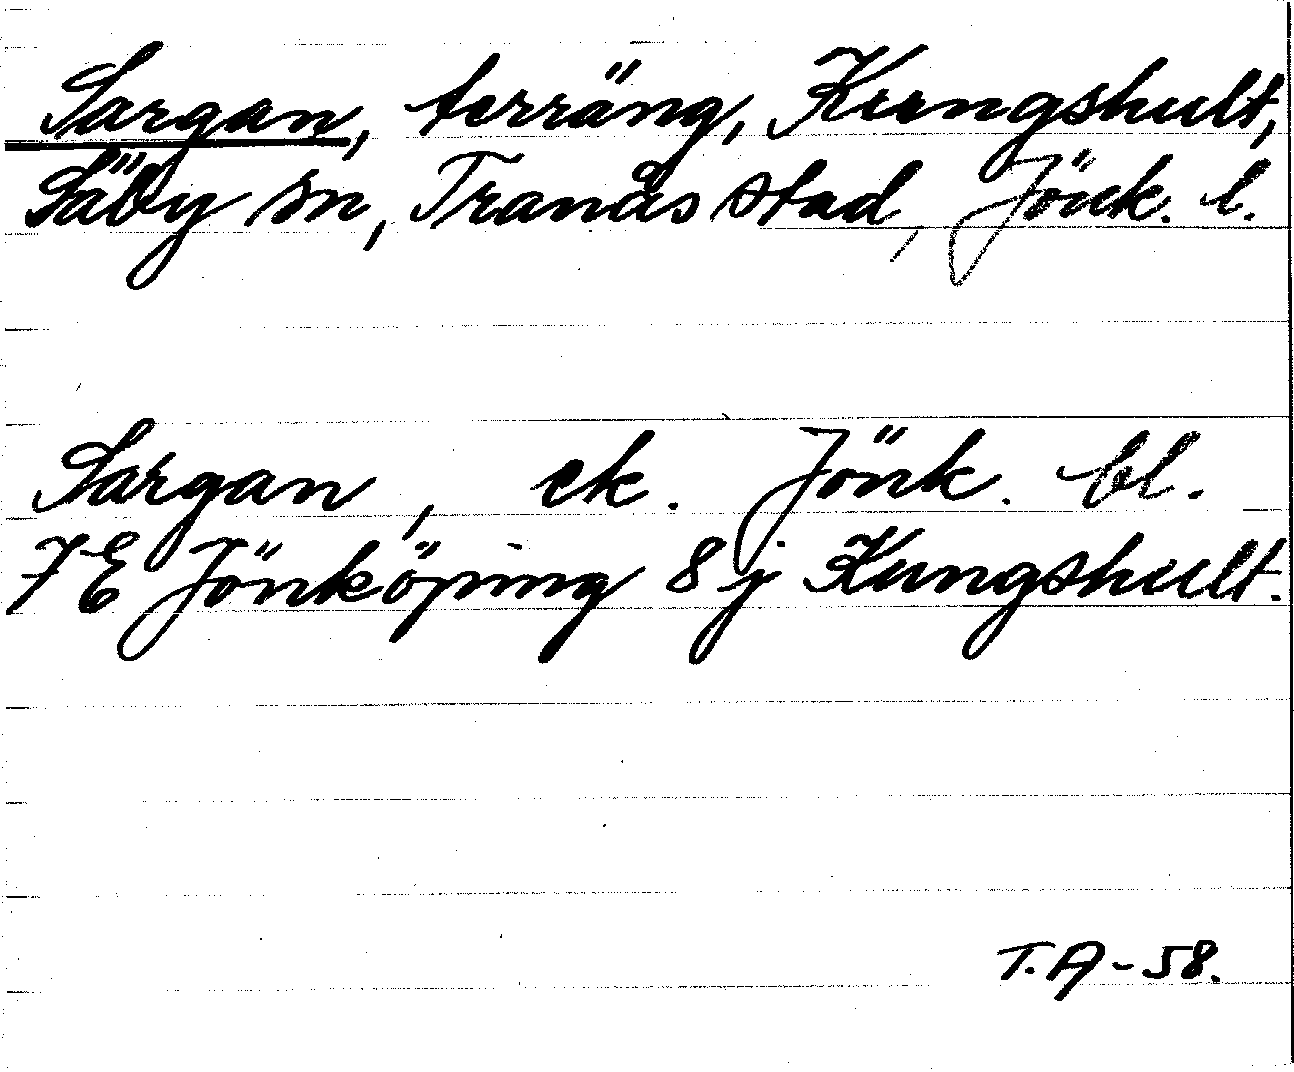 Sargan, terräng, Kungshult,
Säby sn, Tranås stad, Jönk. l.
Sargan, ek. Jönk. bl.
7E Jönköping 8j Kungshult.
T.A-58.